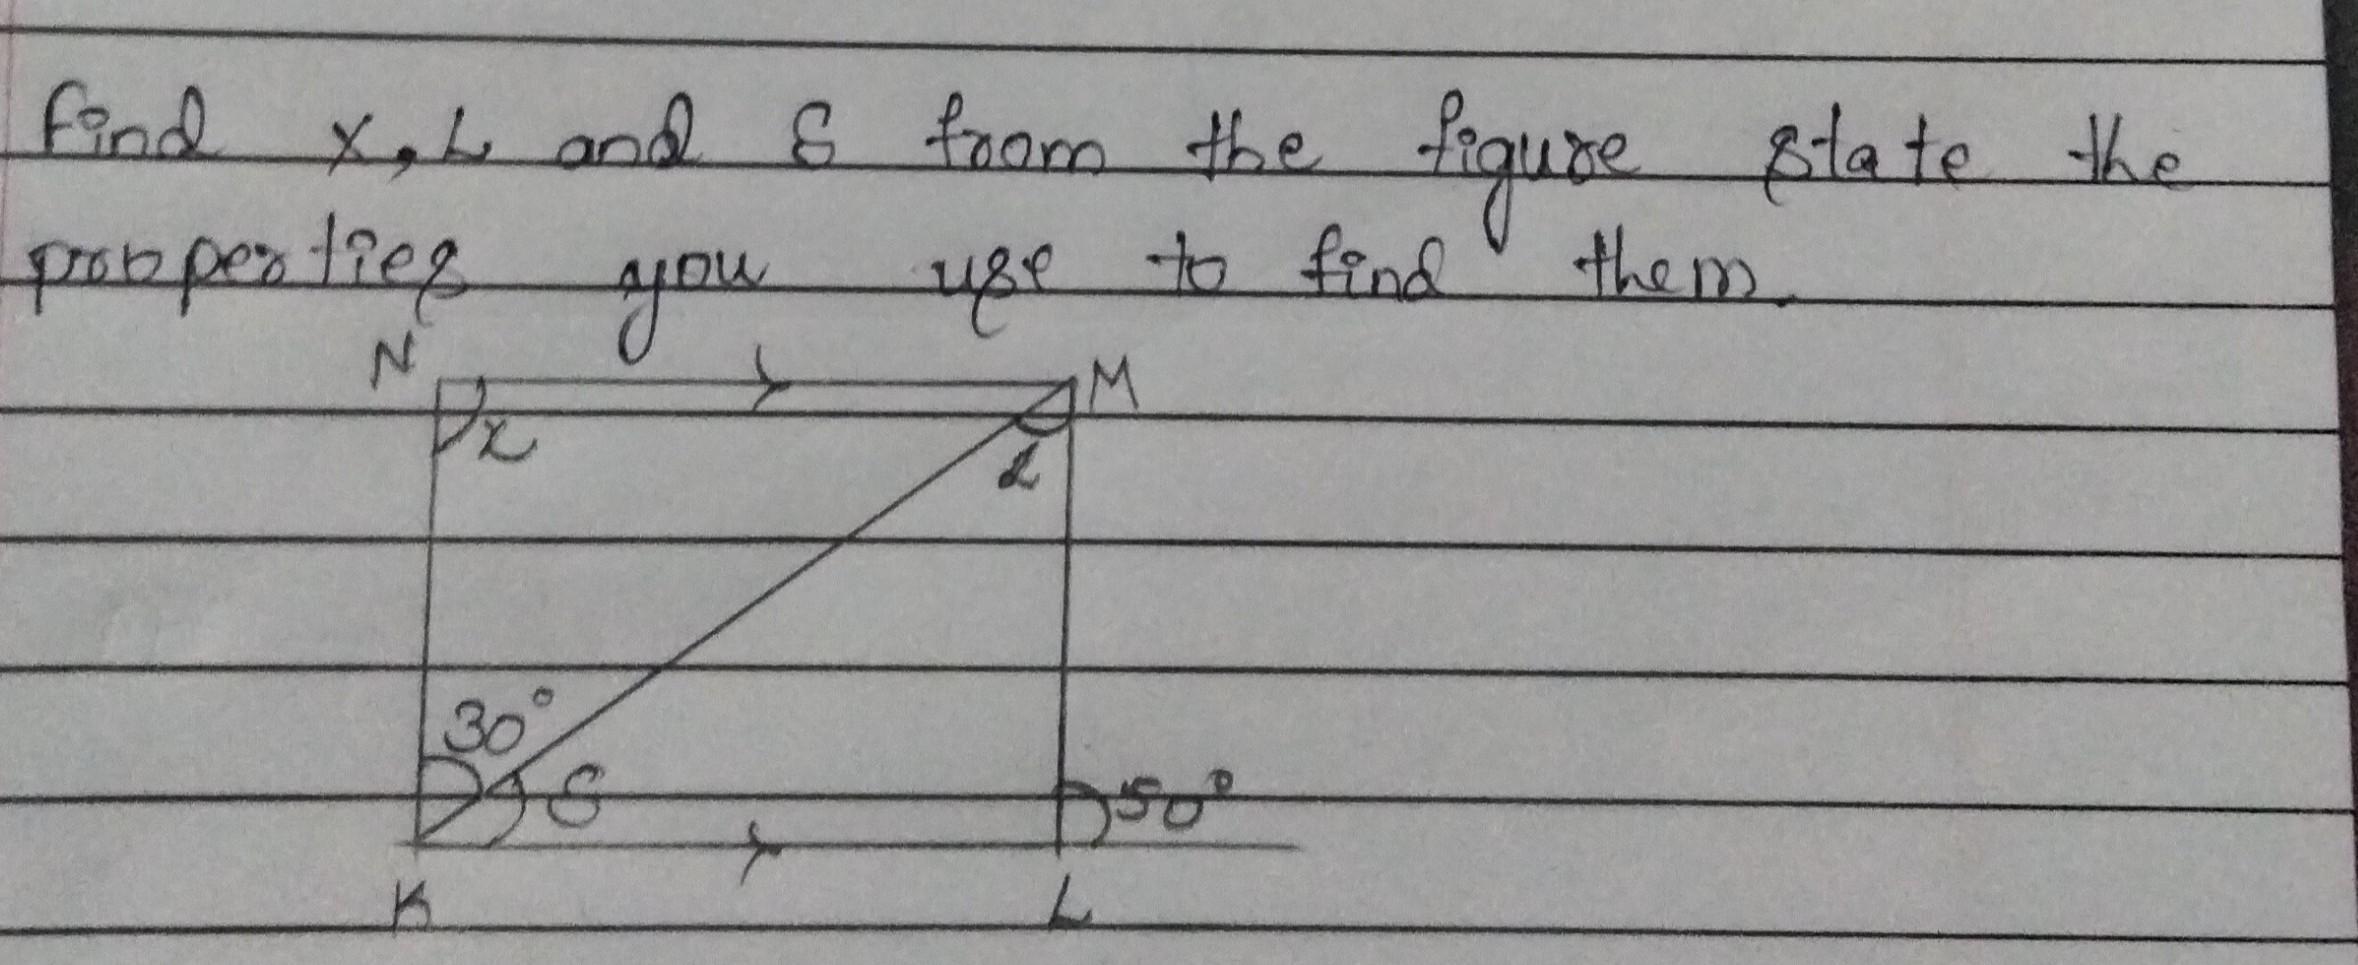 find x, L and S from the figure state the
properties you use to find them.
N M
x
L
30°
S 50°
K L